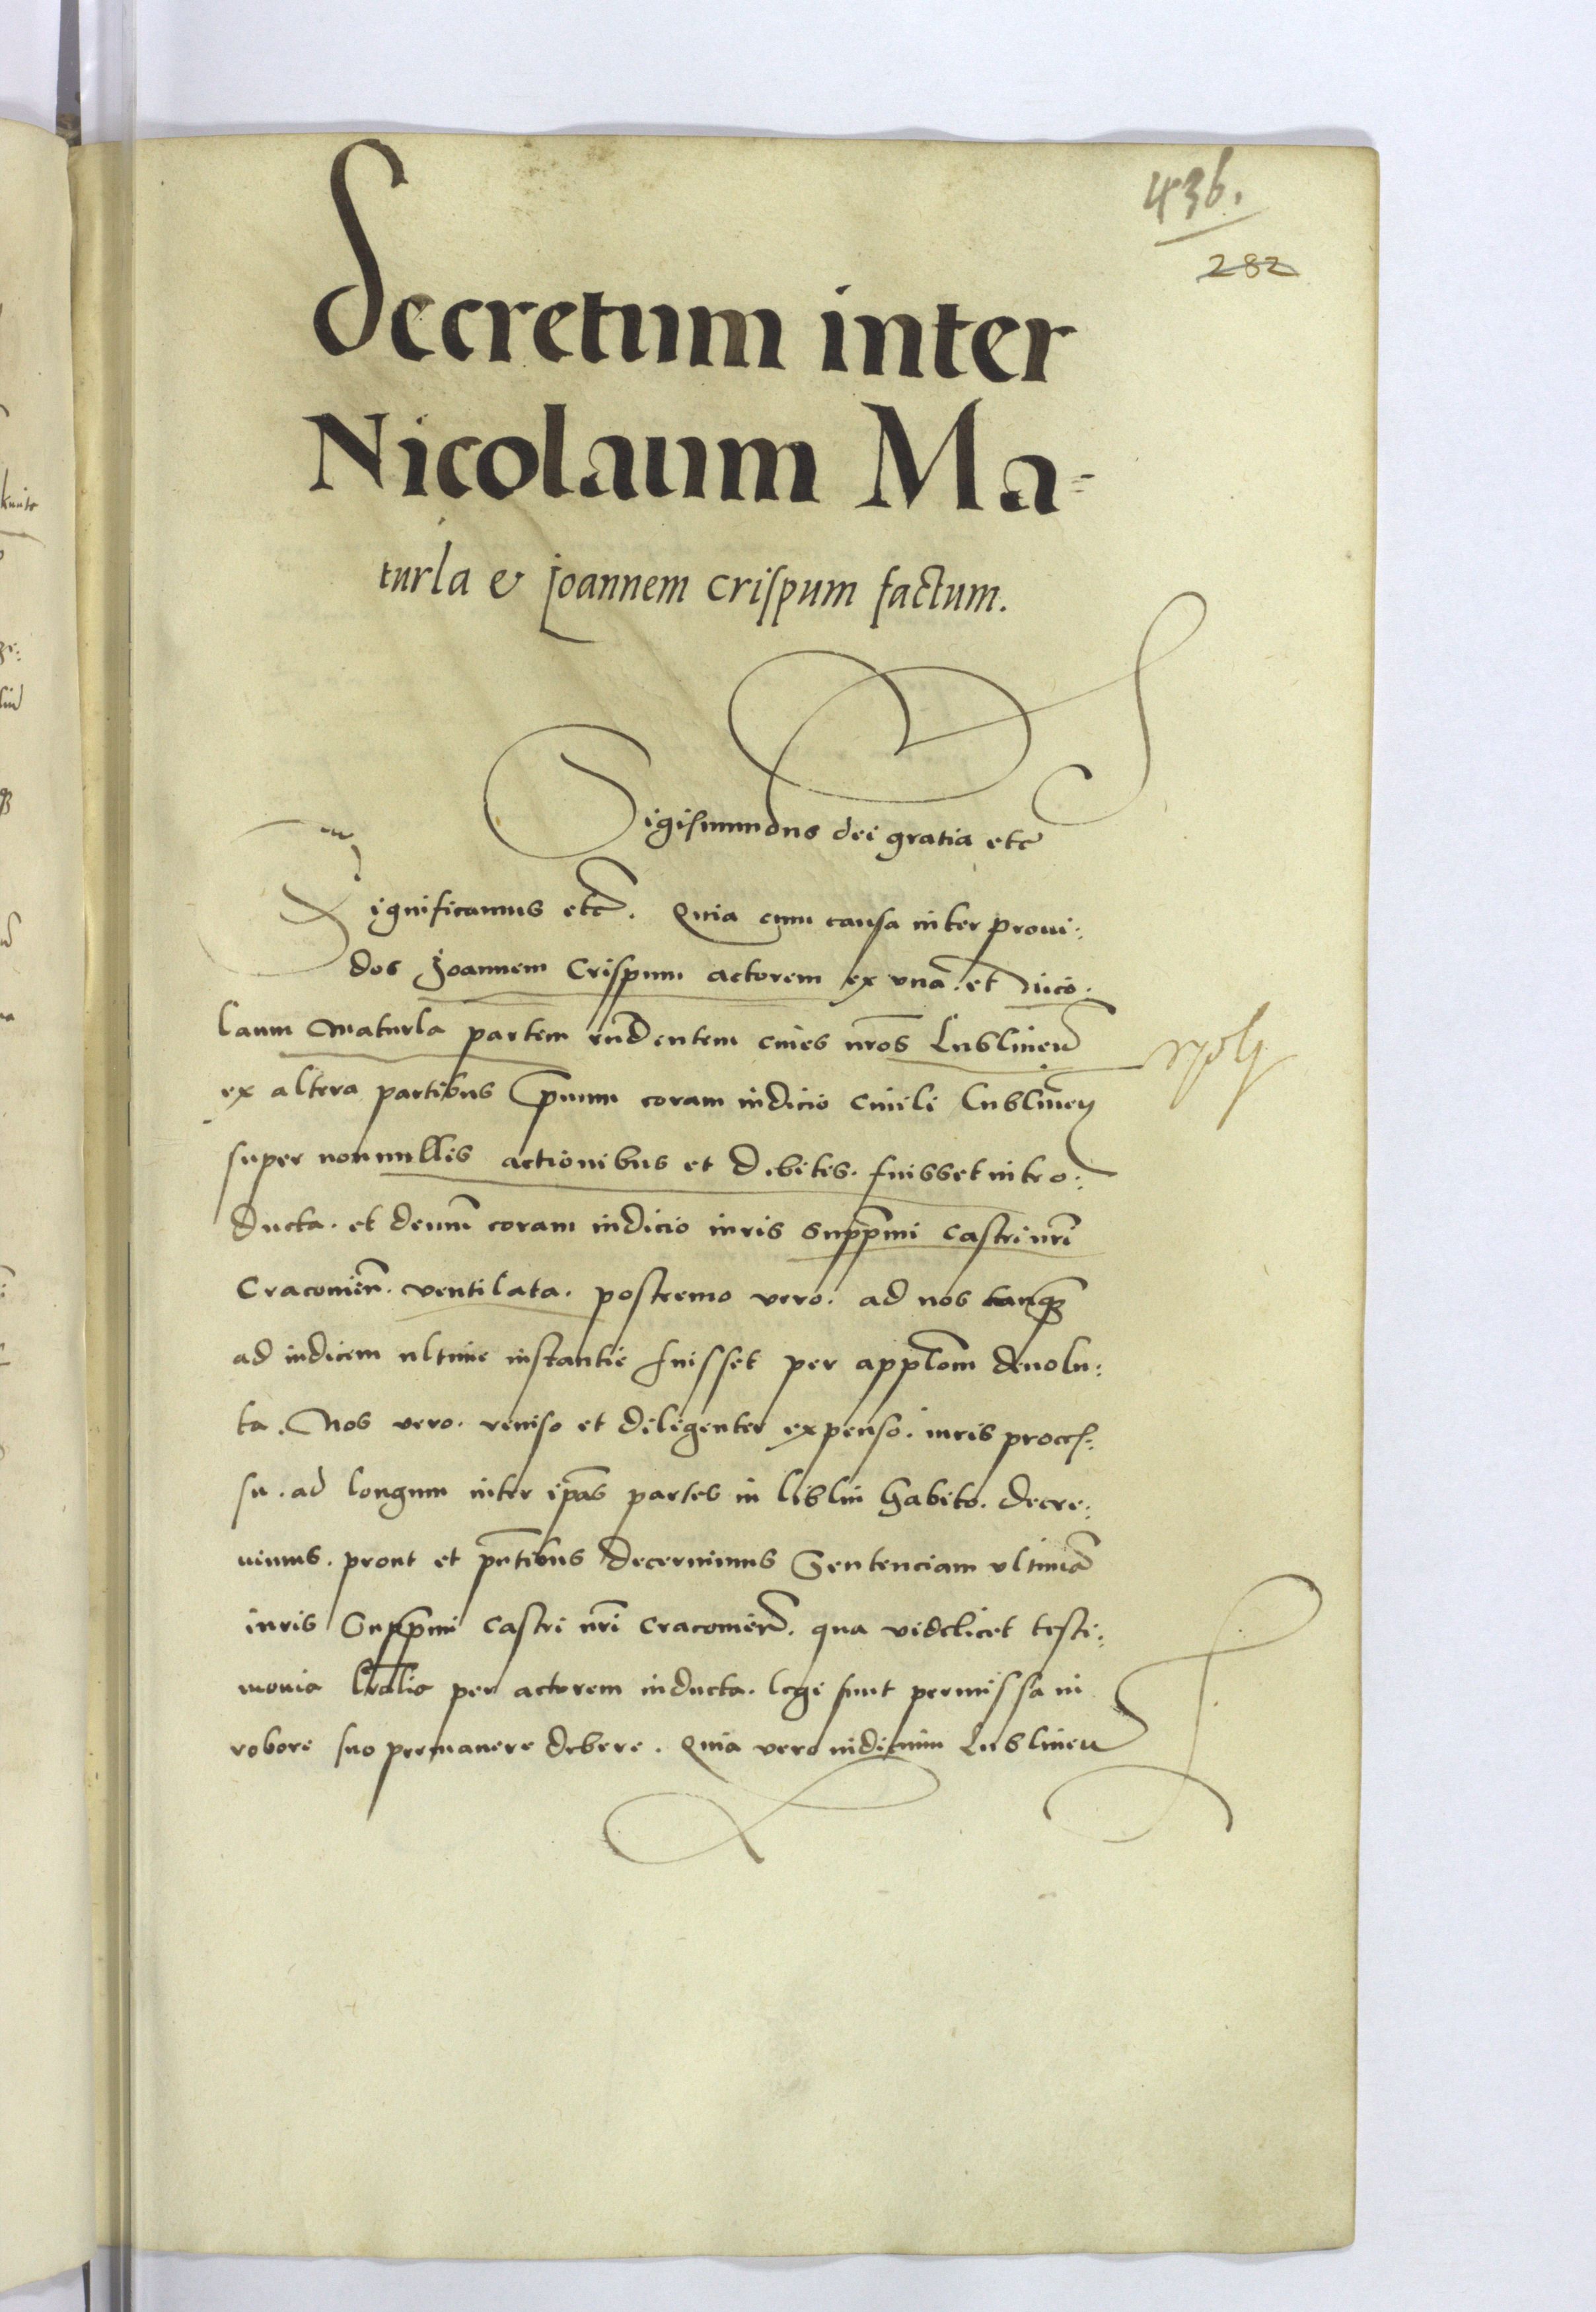 436.
282
Decretum inter
Nicolaum Ma=
turla & Joannem Crispum factum.
Sigismundus dei gratia etc
Significamus etc. Quia cum causa inter proui:
dos Joannem Crispum actorem ex vna. et Nico.
laum Maturla partem rn̄dentem ciues nr̄os Lublineñ
ex altera partibus p̄mum coram iudicio ciuili Lublineñ
super nonnullis actionibus et debitis. fuisset intro:
ducta. et demū coram iudicio iuris supp̄mi castri nr̄i
Cracouieñ. ventilata. postremo vero. ad nos tanqꝫ
ad iudicem ultime instantie fuisset per appl̄om deuolu:
ta. Nos vero. reuiso et diligenter expenso. iuris process:
su. ad longum inter ip̄as partes in liblin habito. decre:
uimus. prout et pn̄tibus decernimus Sentenciam vltimā
iuris Supp̄mi castri nr̄i Cracouieñ. qua videlicet testi:
monia lr̄alia per actorem inducta. legi sunt permissa in
robore suo permanere debere. Quia vero iudicium Lublineñ